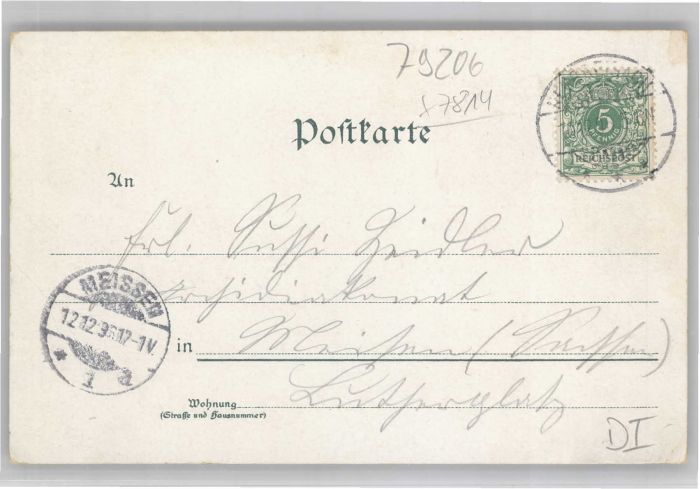 79206
x7814
Postkarte
5
PFENNIG
REICHSPOST
An
Frl. Sussi Zeidler
MEISSEN
12.12.98.12-1V.
* 1 a
in Meissen (Sachsen)
Wohnung Lutherplatz
(Straße und Hausnummer)
DI